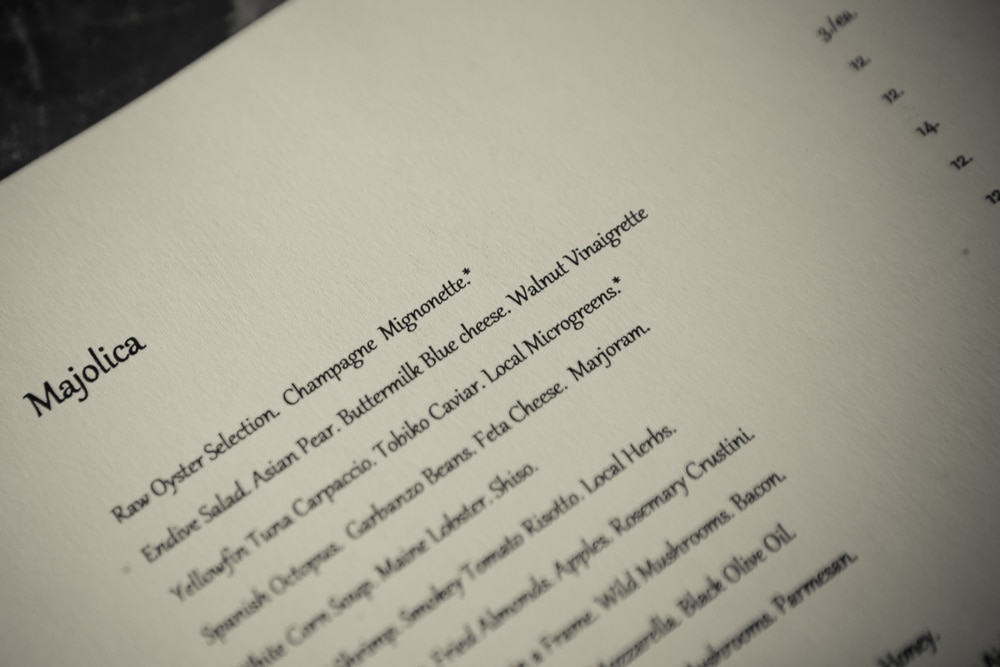 Majolica
Raw Oyster Selection. Champagne Mignonette.* 3./ea.
Endive Salad. Asian Pear. Buttermilk Blue cheese. Walnut Vinaigrette 12.
Yellowfin Tuna Carpaccio. Tobiko Caviar. Local Microgreens.* 12.
Spanish Octopus. Garbanzo Beans. Feta Cheese. Marjoram. 14.
Corn Soup. Maine Lobster. Shiso. 12.
Smokey Tomato Risotto. Local Herbs. 12
Fried Almonds. Apples. Rosemary Crustini.
a Frame. Wild Mushrooms. Bacon.
Black Olive Oil.
Parmesan.
Honey.